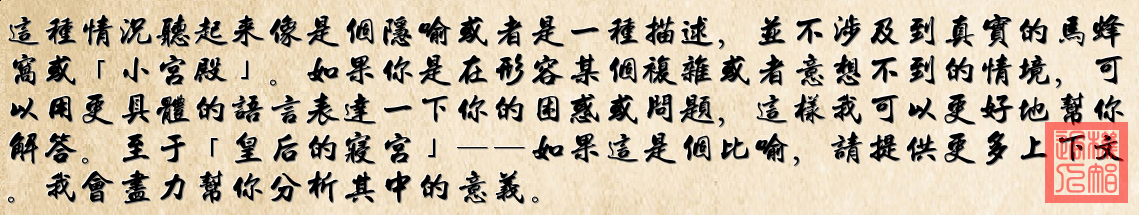 這種情況聽起來像是個隱喻或者是一種描述，並不涉及到真實的馬蜂
窩或「小宮殿」。如果你是在形容某個複雜或者意想不到的情境，可
以用更具體的語言表達一下你的困惑或問題，這樣我可以更好地幫你
解答。至于「皇后的寢宮」——如果這是個比喻，請提供更多上下文
。我會盡力幫你分析其中的意義。